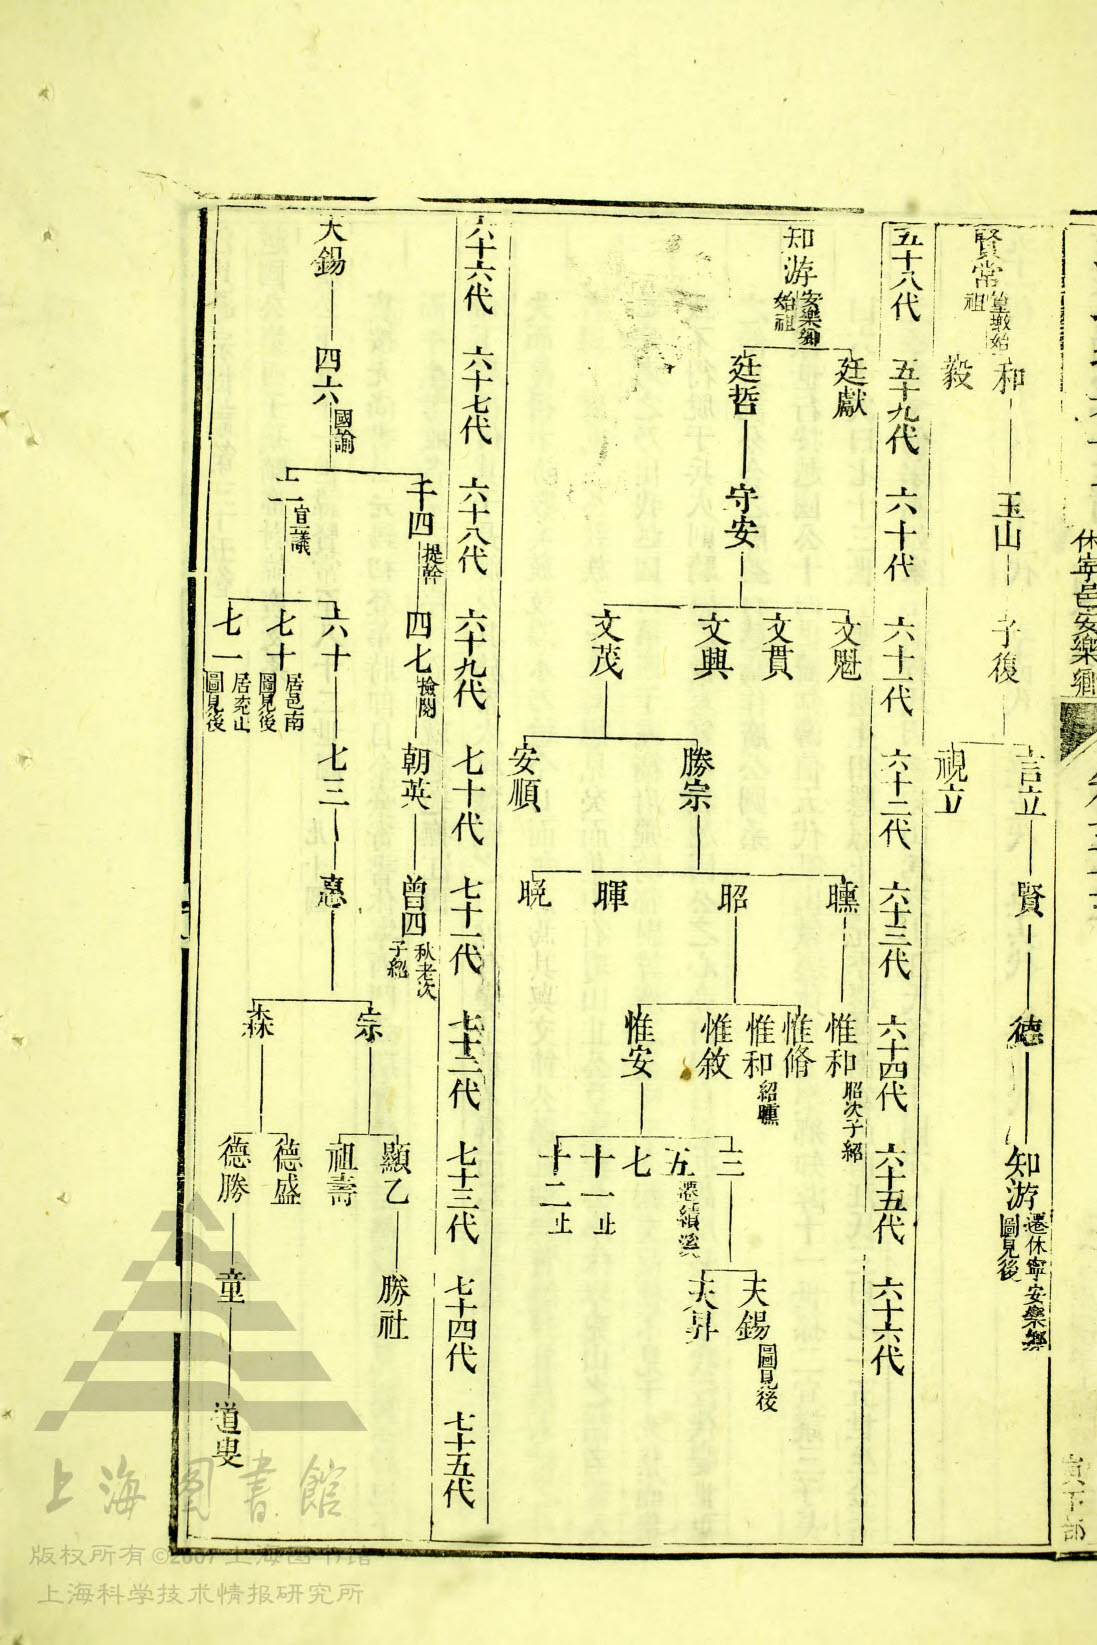 休寧邑安樂鄉
寅下部
賢常
始祖
和
毅
玉山
子復
言立
視立
賢
德
知游 遷休寧安樂鄉
圖見後
五十八代 五十九代 六十代 六十一代 六十二代 六十三代 六十四代 六十五代 六十六代
知游 安樂鄉
始祖
廷獻
廷哲
守安
文魁
文貫
文興
文茂
勝宗
安順
曛
昭
暉
晚
惟和 昭次子紹
惟脩
惟和 紹曛
惟敘
惟安
三
五 遷績溪
七
十一止
十二止
天錫 圖見後
天昇
六十六代 六十七代 六十八代 六十九代 七十代 七十一代 七十二代 七十三代 七十四代 七十五代
天錫
四六 國諭
千四 提幹
宣議
四七 檢閱
六十
七十 居邑南
圖見後
七一
圖見後
朝英
七三
曾四 秋老次
子紹
宗
森
顯乙
祖壽
德盛
德勝
勝社
童
道叟
上海图書館
版权所有©2007上海图书馆
上海科学技术情报研究所